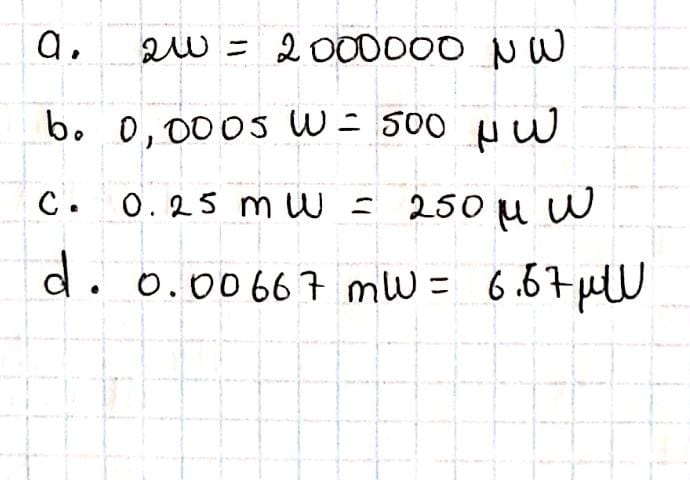 a. 2W = 2000000 µW
b. 0,0005 W = 500 µW
c. 0.25 mW = 250 µW
d. 0.00667 mW = 6.67 µW